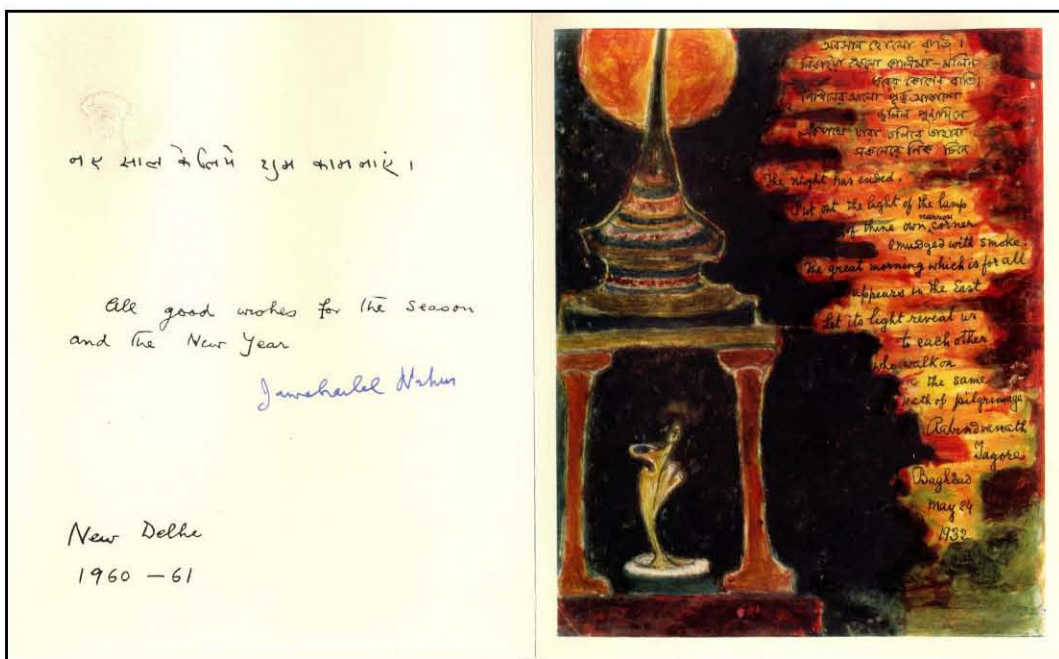 नए साल के लिये शुभ कामनाएं।
All good wishes for the season
and the New Year
Jawaharlal Nehru
New Delhi
1960 – 61
অবসান হোলো রাতি।
নিবাইয়া ফেলো কালিমা-মলিন
ঘরের কোণের বাতি।
নিখিলের আলো পূর্ব্ব আকাশে
জ্বলিল পুণ্যদিনে
একপথে যারা চলিবে তাহারা
সকলেরে নিক্ চিনে
The night has ended.
Put out the light of the lamp
of thine own narrow corner
smudged with smoke.
The great morning which is for all
appears in the East
Let its light reveal us
to each other
who walk on
the same
path of pilgrimage
Rabindranath
Tagore
Baghdad
May 24
1932